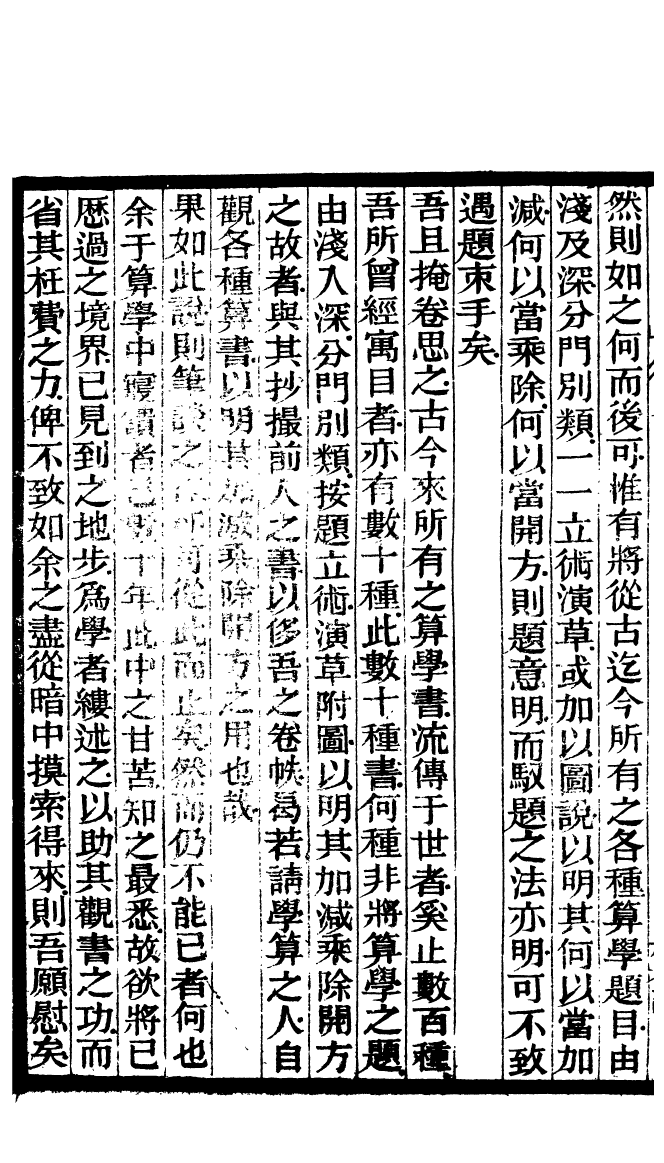 然則如之何而後可惟有將從古迄今所有之各種算學題目由
淺及深分門別類一一立術演草或加以圖說以明其何以當加
減何以當乘除何以當開方則題意明而馭題之法亦明可不致
遇題束手矣
吾且掩卷思之古今來所有之算學書流傳于世者奚止數百種
吾所曾經寓目者亦有數十種此數十種書何種非將算學之題
由淺入深分門別類按題立術演草附圖以明其加減乘除開方
之故者與其抄撮前人之書以侈吾之卷帙曷若請學算之人自
觀各種算書以明其加減乘除開方之用也哉
果如此說則筆談之從此而止矣然而仍不能已者何也
余于算學中寢饋者已數十年此中之甘苦知之最悉故欲將已
歷過之境界已見到之地步爲學者縷述之以助其觀書之功而
省其枉費之力俾不致如余之盡從暗中摸索得來則吾願慰矣